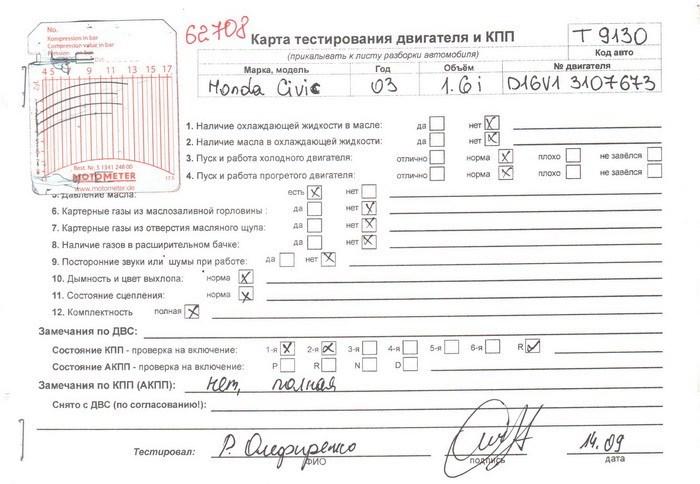 No.
Kompression in bar
Compression value in bar
4 5 7 9 11 13 15 17
Best. Nr. 5 1341 248 00
MOTOMETER
www.motometer.de
62708
Карта тестирования двигателя и КПП
(прикалывать к листу разборки автомобиля)
T 9130
Код авто
Марка, модель Год Объём № двигателя
Honda Civic 03 1.6i D16V1 3107673
1. Наличие охлаждающей жидкости в масле: да нет
2. Наличие масла в охлаждающей жидкости: да нет
3. Пуск и работа холодного двигателя: отлично норма плохо не завёлся
4. Пуск и работа прогретого двигателя: отлично норма плохо не завёлся
5. Давление масла: есть нет
6. Картерные газы из маслозаливной горловины : да нет
7. Картерные газы из отверстия масляного щупа: да нет
8. Наличие газов в расширительном бачке: да нет
9. Посторонние звуки или шумы при работе: да нет
10. Дымность и цвет выхлопа: норма
11. Состояние сцепления: норма
12. Комплектность полная
Замечания по ДВС:
Состояние КПП - проверка на включение: 1-я 2-я 3-я 4-я 5-я 6-я R
Состояние АКПП - проверка на включение: P R N D
Замечания по КПП (АКПП): нет, полная
Снято с ДВС (по согласованию!):
Тестировал: Р. Олефиренко 14.09
ФИО подпись дата